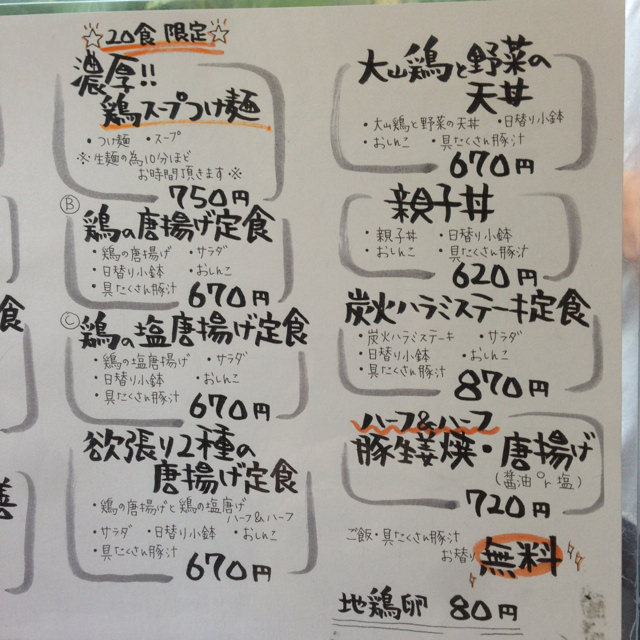 ☆20食 限定☆
濃厚!!
鶏スープつけ麺
・つけ麺 ・スープ
※生麺の為10分ほど
お時間頂きます※
750円
Ⓑ
鶏の唐揚げ定食
・鶏の唐揚げ ・サラダ
・日替り小鉢 ・おしんこ
・具たくさん豚汁
670円
Ⓒ
鶏の塩唐揚げ定食
・鶏の塩唐揚げ ・サラダ
・日替り小鉢 ・おしんこ
・具たくさん豚汁
670円
欲張り2種の
唐揚げ定食
・鶏の唐揚げと鶏の塩唐揚げ
ハーフ&ハーフ
・サラダ ・日替り小鉢 ・おしんこ
・具たくさん豚汁
670円
大山鶏と野菜の
天丼
・大山鶏と野菜の天丼 ・日替り小鉢
・おしんこ ・具たくさん豚汁
670円
親子丼
・親子丼 ・日替り小鉢
・おしんこ ・具たくさん豚汁
620円
炭火ハラミステーキ定食
・炭火ハラミステーキ ・サラダ
・日替り小鉢 ・おしんこ
・具たくさん豚汁
870円
ハーフ&ハーフ
豚生姜焼・唐揚げ
(醤油or塩)
720円
ご飯・具たくさん豚汁
お替り 無料
地鶏卵 80円
食